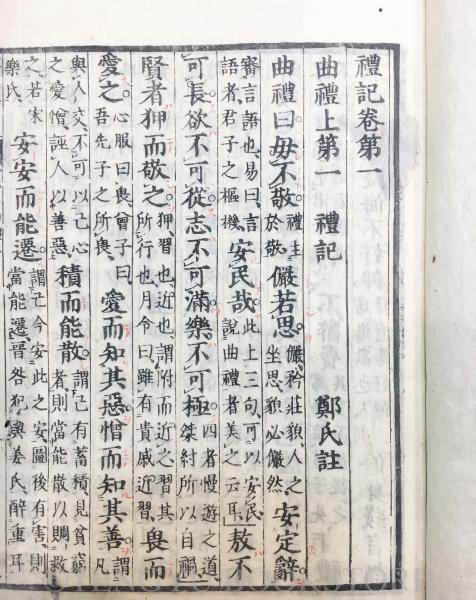 禮記卷第一
曲禮上第一　禮記　鄭氏註
曲禮曰毋不敬。禮主於敬儼若思。儼矜莊貌人之坐思貌必儼然安定辭
審言語也易曰言語者君子之樞機安民哉。此上三句可以安民說曲禮者美之云耳敖不
可長欲不可從志不可滿樂不可極四者慢遊之道桀紂所以自禍
賢者狎而敬之。狎習也近也謂附而近之習其所行也月令曰雖有貴戚近習畏而
愛之。心服曰畏曾子曰吾先子之所畏愛而知其惡憎而知其善。謂凡
與人交不可以己心之愛憎誣人以善惡積而能散。謂己有蓄積見貧窮者則當能散以賙救
之若宋樂氏安安而能遷。謂己今安此之安圖後有害則當能遷晉咎犯與姜氏醉重耳